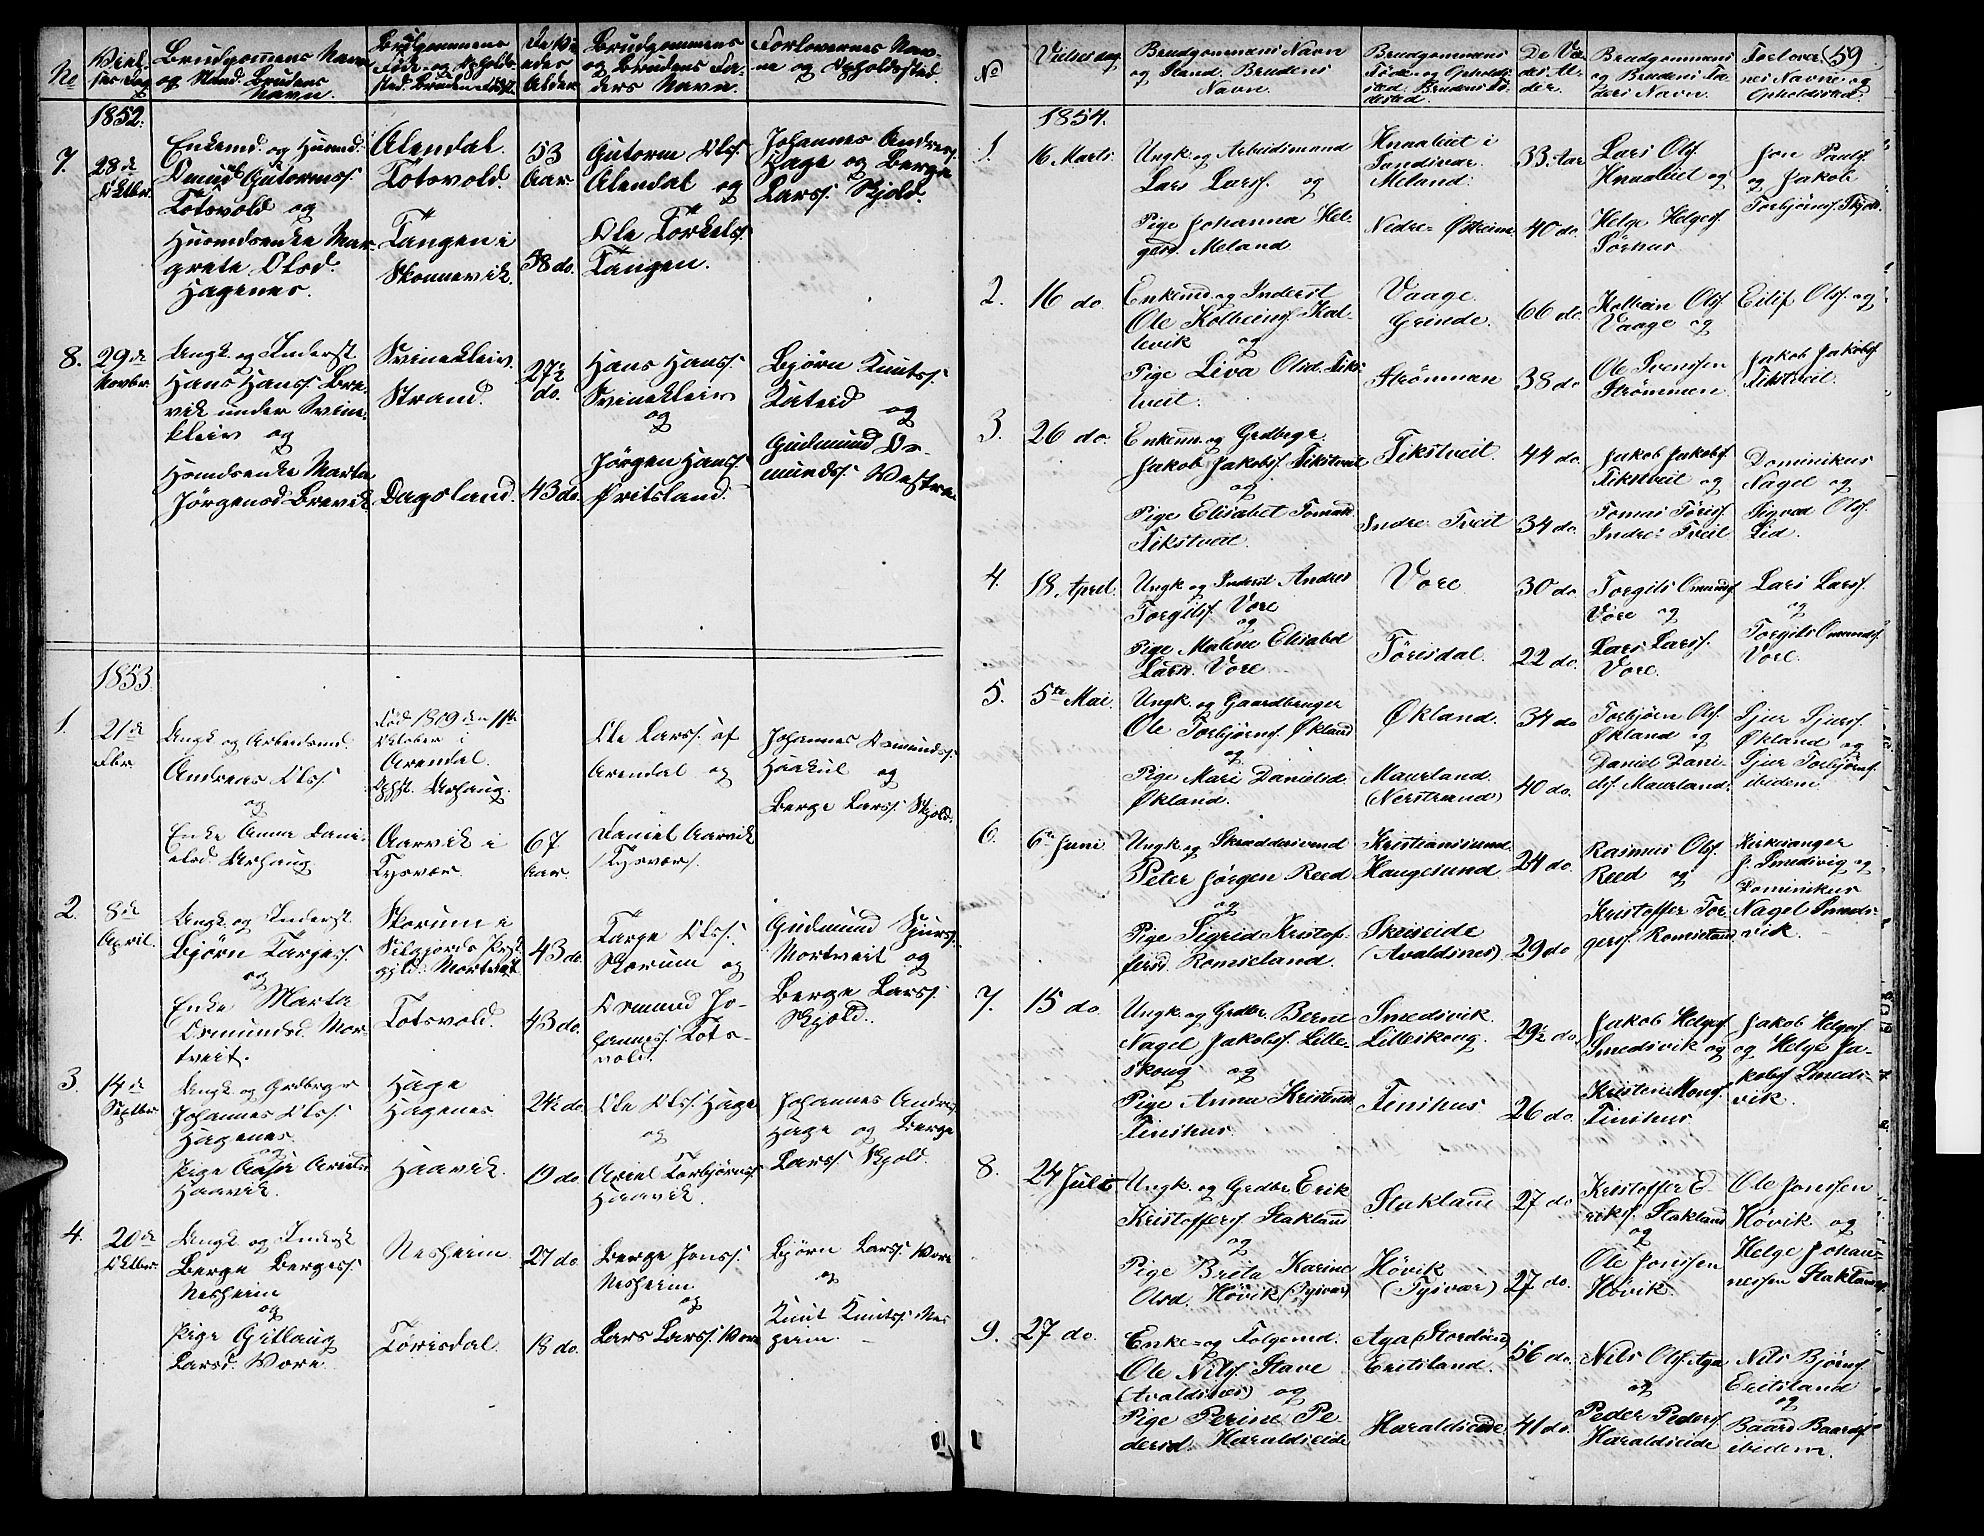 No
Vielsesdag
Brudgommens Navn og Stand. Brudens Navn.
Brudgommens Føde- og Opholdssted. Brudens Fødst.
De Viedes Alder
Brudgommens og Brudens Faders Navn.
Forlovernes Navne og Opholdssted
1852.
7.
28de Oktbr.
Enkemd. og Huusmd.
Osmund Gutormss.
Totsvold og
Huusmdsenke Margrete Olsd.
Hagenes.
Alendal.
Totsvold.
Tangen i
Skonnevik.
53 Aar
58 do.
Gutorm Olss.
Alendal og
Ole Torkelss.
Tangen.
Johannes Andress.
Hage og Berge
Larss. Skjold.
8.
29de Novbr.
Ungk. og Inderst
Hans Hanss. Brevik under Svinekleiv og
Husmdsenke Marta
Jörgensd. Brevik.
Svinekleiv
Strand.
Dagsland.
27½ do.
43 do.
Hans Hanss.
Svinekleiv
og
Jörgen Hanss.
Øritsland.
Bjørn Knutss.
og
Gudmund Osmundss. Vestre
1853.
1.
21de Fbr.
Ungk. og Arbeidsmd.
Andreas Olss.
og
Enke Anna Danielsd. Arhaug.
Föd 1809 den 11te
Oktober i
Arendal.
Arhaug.
Aarvik i
Tysvær.
67 Aar.
Ole Larss. af
Arendal og
Daniel Aarvik
Tysvær.
Johannes Osmundss.
og
Berge Larss. Skjold.
2.
8de April.
Ungk. og Inderst
Bjørn Targess.
og
Enke Marta
Osmundsd. Mortveit.
Skorum i
Mortveit
Totsvold.
43 do.
43 do.
Targe Olss.
Skorum og
Osmund Johanness. Totsvold.
Gudmund Sjurss.
Mortveit og
Berge Larss.
Skjold.
3.
14de Septbr.
Ungk. og Grdbrgr
Johannes Olss.
Hagenes
og
Pige Aasa Arielsd.
Haavik.
Hage
Hagenes
Haavik.
24½ do.
19 do.
Ole Olss. Hage
og
Ariel Torbjørnss.
Haavik.
Johannes Andress.
Hage og Berge
Larss. Skjold.
4.
20de Oktbr.
Ungk. og Inderst
Berge Bergess.
Nesheim
og
Pige Gitlaug
Larsd. Vore.
Nesheim.
Törisdal.
27 do.
18 do.
Berge Jonss.
Nesheim
og
Lars Larss. Vore
Bjørn Larss. Vore
og
Knut Knutss. Nesheim.
59
No
Vielsesdag
Brudgommens Navn og Stand. Brudens Navn.
Brudgommens Føde- og Opholdssted. Brudens Fødested.
De Viedes Alder.
Brudgommens og Brudens Faders Navn.
Forlovernes Navne og Opholdssted.
1854.
1.
16 Marts.
Ungk. og Arbeidsmand
Lars Larss. og
Pige Johanna Helgesd. Meland
Knaaleit i
Sandeiar.
Meland.
Nedre-Østeime
33 Aar
40 do.
Lars Ols.
Knaaleit og
Helge Helges.
Sørhus
Jon Pauls.
og Jakob
Torbjørns. Skjold.
2.
16 do.
Enkemd. og Inderst
Ole Kolbeins. Kallevik og
Pige Liva Olsd. Tikstveit.
Vaage.
Grinde.
Strömmen
66 do.
38 do.
Kolbein Ols.
Vaage og
Ole Svenssen
Strömmen
Eilif Ols. og
Jakob Jakobs.
Tikstveit.
3.
26 do.
Enkemd. og Grdbrgr.
Jakob Jakobs. Tikstveit
og
Pige Elisabet Tomasd.
Tikstveit.
Tikstveit.
Indre-Tveit
44 do.
34 do.
Jakob Jakobs.
Tikstveit og
Tomas Töris.
Indre-Tveit
Dominikus
Nagel og
Sigvad Ols.
Lid.
4.
18 April.
Ungk. og Inderst Andres
Torgils. Vore
og
Pige Malene Elisabet
Larsd. Vore.
Vore
Törisdal.
30 do.
22 do.
Torgils Omunds.
Vore og
Lars Larss.
Vore.
Lars Larss.
og
Torgils Omunds.
Vore.
5.
5te Mai.
Ungk. og Gaardbruger
Ole Torbjørns. Økland
og
Pige Mari Danielsd.
Økland.
Økland.
Maurland
(Nerstrand)
34 do
40 do.
Torbjørn Ols.
Økland og
Daniel Daniels. Maurland.
Sjur Sjurs.
Økland og
Sjur Torbjørns.
ibidem.
6.
6te Juni
Ungk. og Skræddersvend
Peter Jørgen Reed
og
Pige Sigrid Kristoffersd. Romseland.
Kristiansund.
Haugesund
Skeiseide
(Avaldsnes)
24 do.
29 do
Rasmus Ols.
Reed og
Kristoffer Torgers. Romseland
Kirkesanger
J. Smedsvig og
Dominikus
Nagel Smedsvik.
7.
15 do.
Ungk. og Grdbr. Berne
Nagel Jakobs. Lilleskoug og
Pige Anna Kristensd.
Finshus.
Smedsvik.
Lilleskoug.
Finshus
29½ do.
26 do.
Jakob Helges.
Smedsvik og
Kristen Mons.
Finshus
Jakob Helges.
og Helge Jakobs. Smedsvik.
8.
24 Juli
Ungk. og Grdbr. Erik
Kristoffers. Stakland
og
Pige Breta Karine
Olsd. Høvik (Tysvær)
Stakland
Høvik
(Tysvær)
27 do.
27 do.
Kristoffer Eriks. Stakland
og
Ole Jonssen
Høvik.
Ole Jonssen
Høvik og
Helge Johannessen Stakland
9.
27 do.
Enke- og Følgemd.
Ole Nils. Stave
(Avaldsnes) og
Pige Perine Pedersd. Haraldseide
Aga (Stordöen)
Eritsland.
Haraldseide
56 do.
41 do.
Nils Ols. Aga
og
Peder Peders.
Haraldseide
Nils Bjørns.
Eritsland
og
Baard Baards.
ibidem.